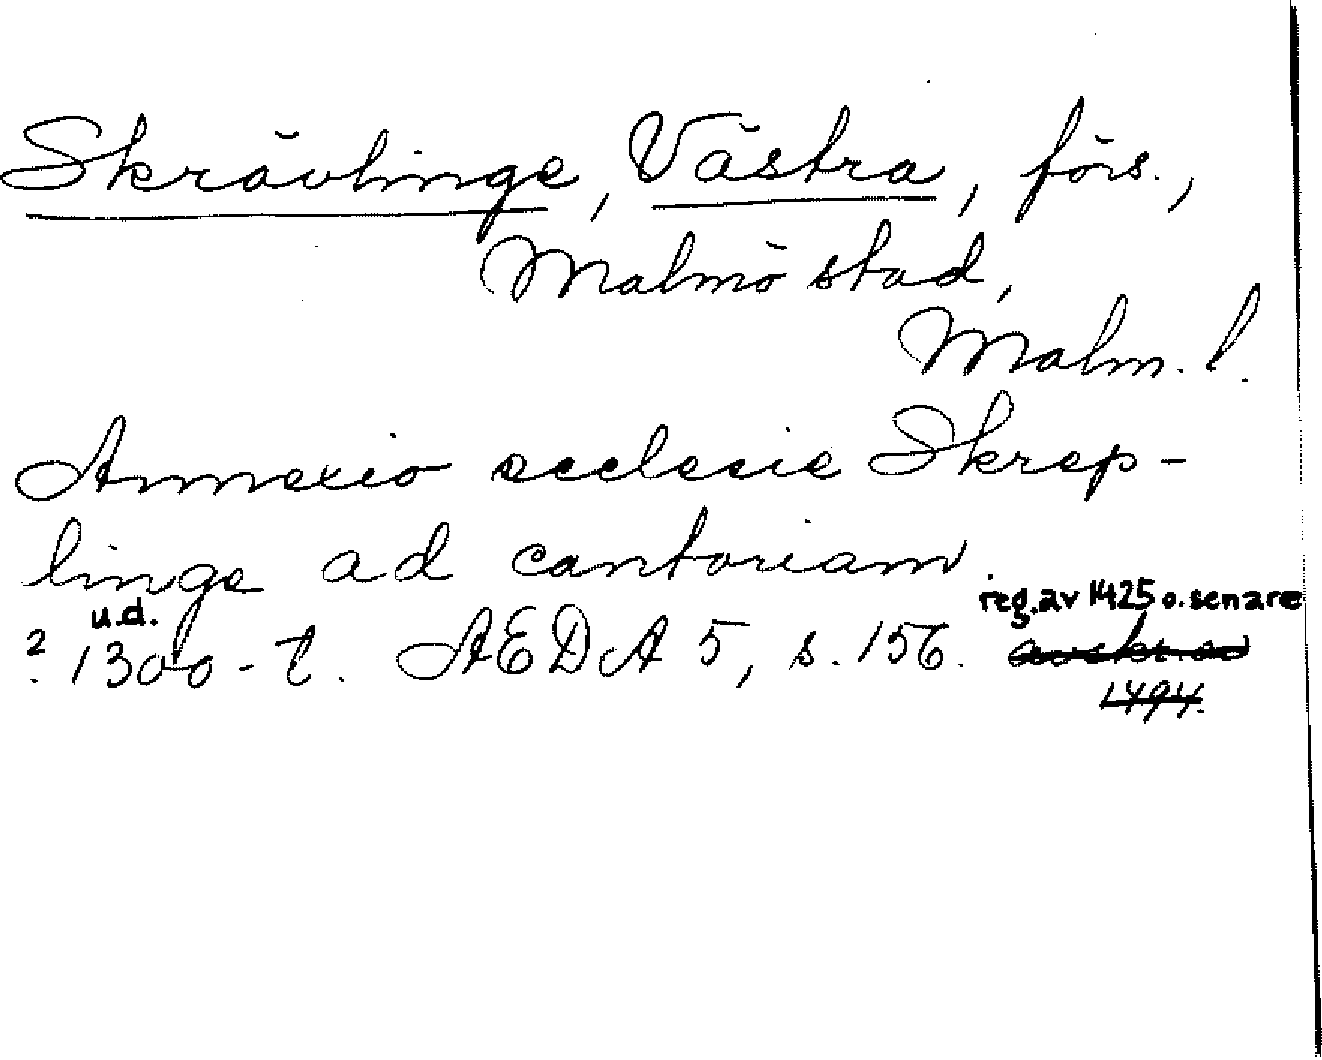 Skrävlinge, Västra, förs.,
Malmö stad,
Malm. l.
Annexio ecclesie Skrep-
linge ad cantoriam.
u.d. reg. av 1425 o. senare
? 1300-t. AEDA 5, s. 156.
1494.